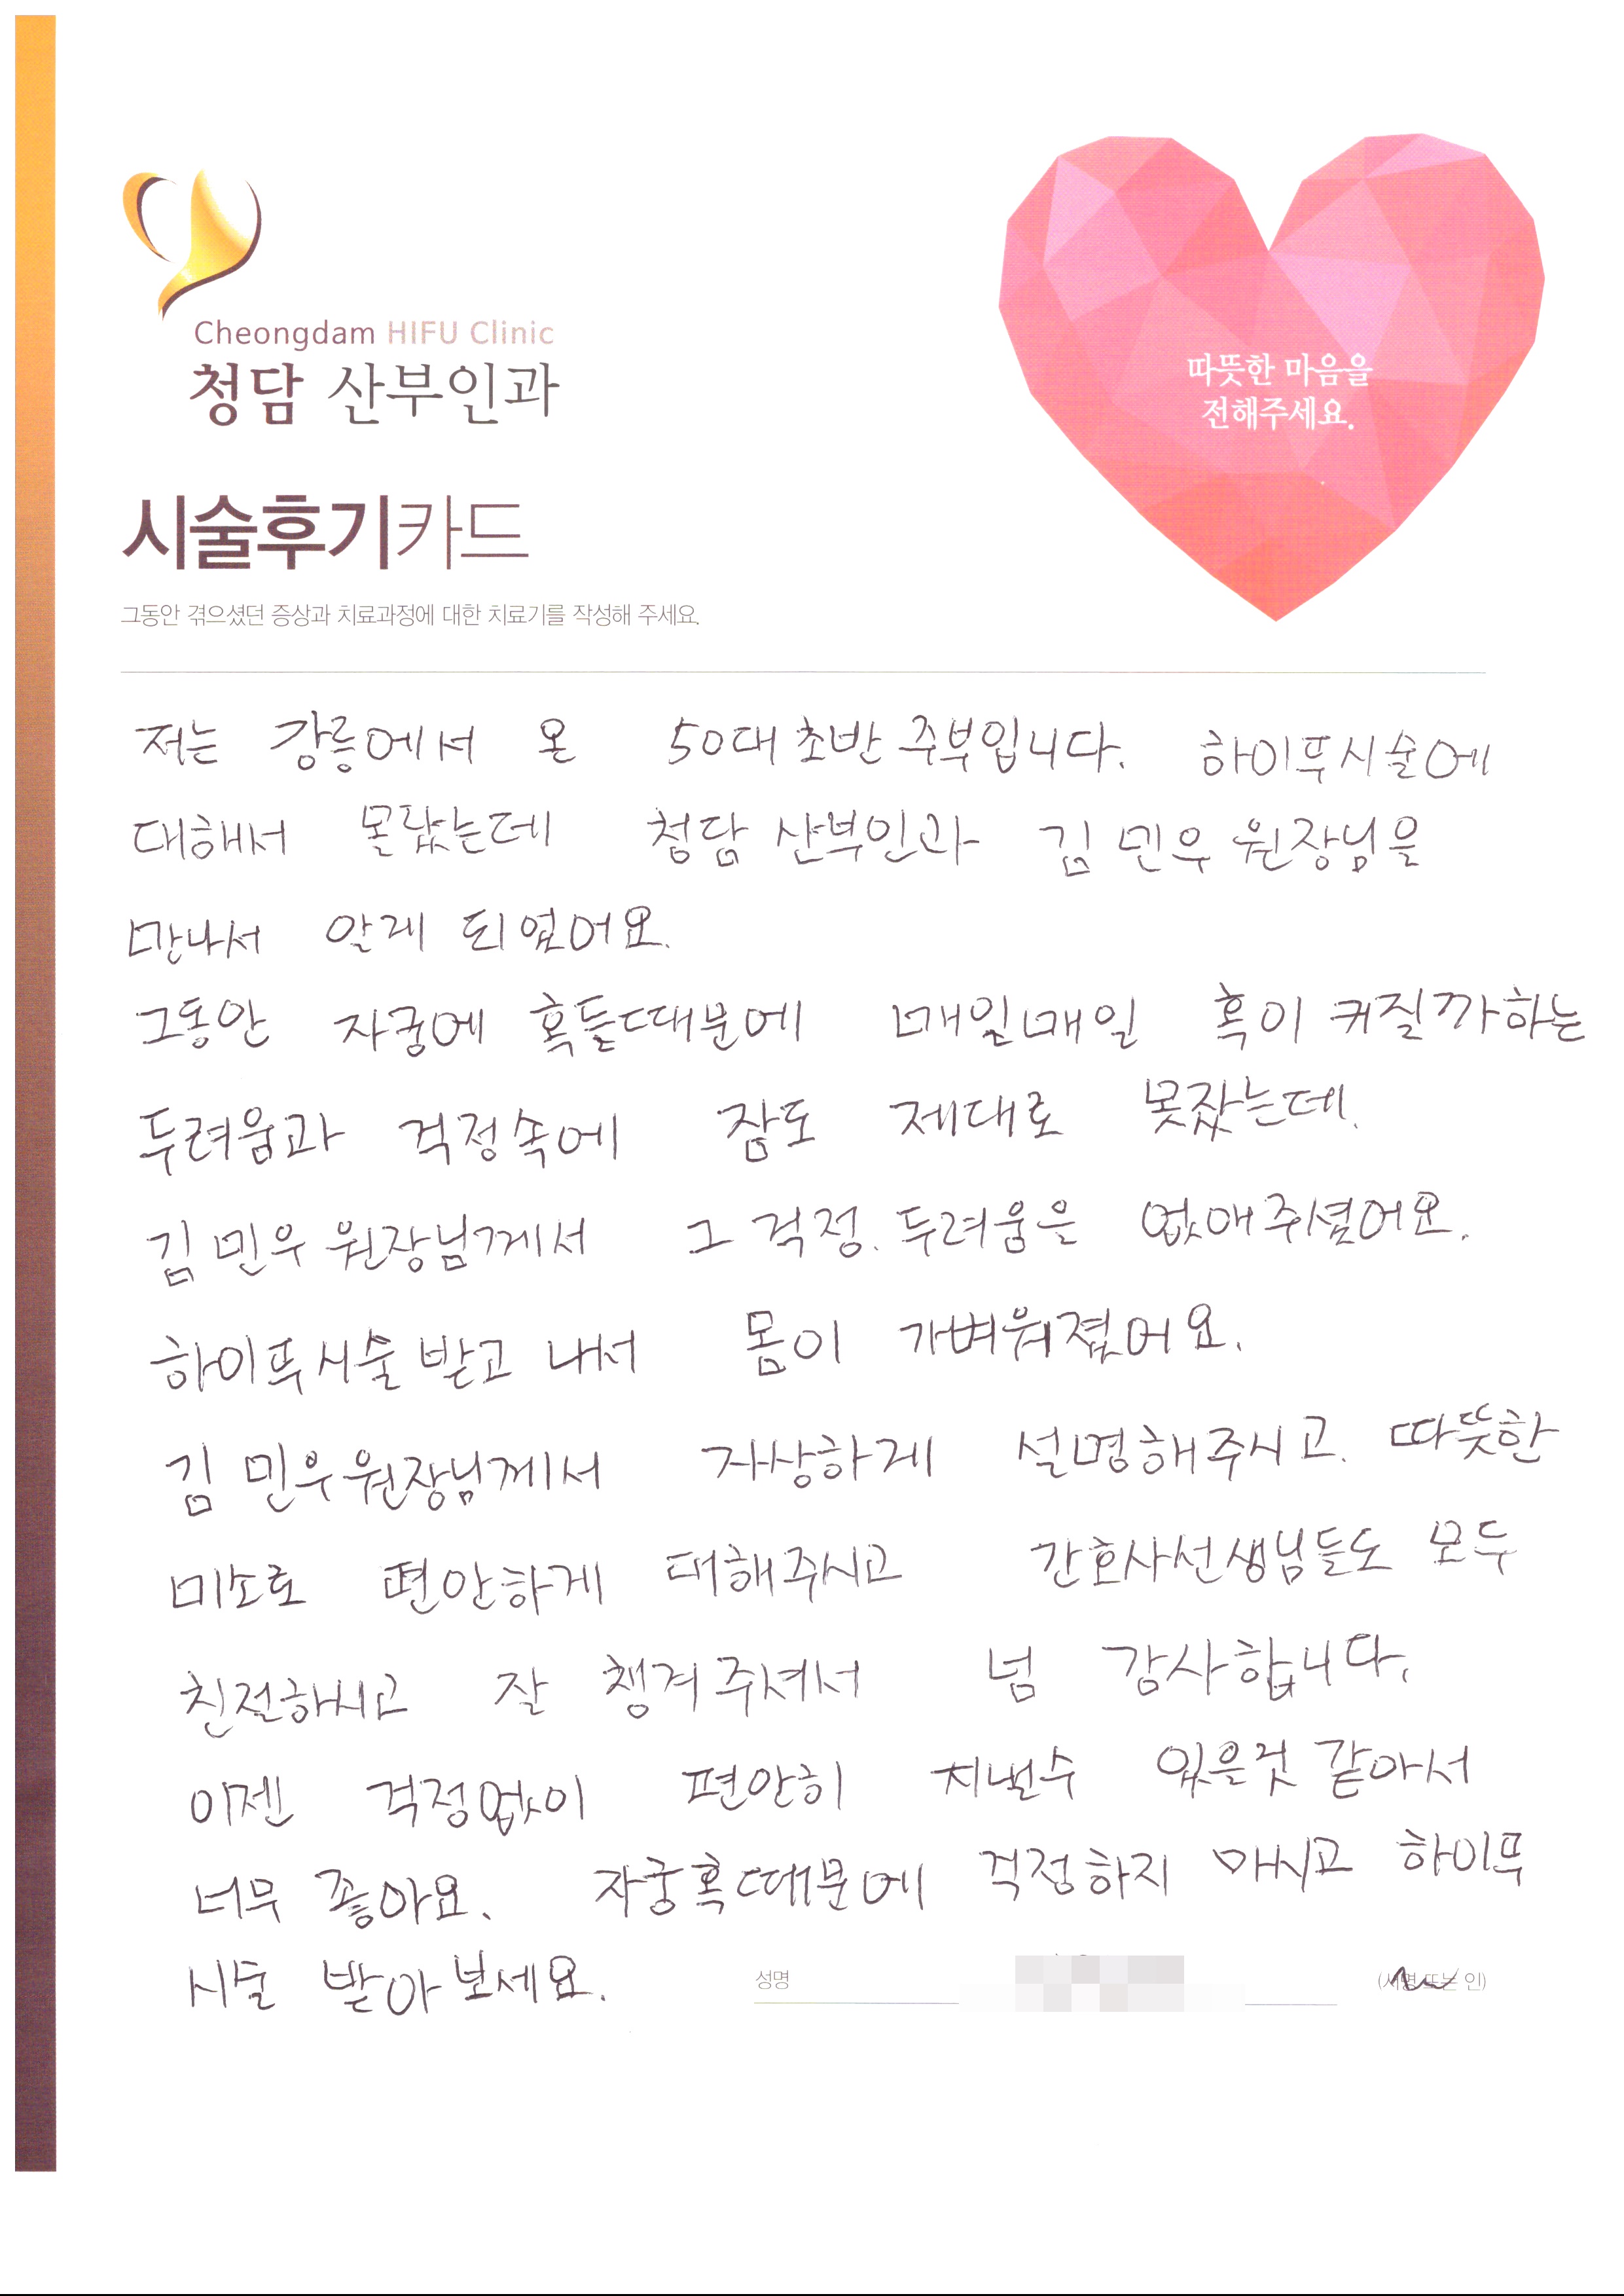 Cheongdam HIFU Clinic
청담 산부인과
따뜻한 마음을
전해주세요.
시술후기카드
그동안 겪으셨던 증상과 치료과정에 대한 치료기를 작성해 주세요.
저는 강릉에서 온 50대 초반 주부입니다. 하이푸시술에
대해서 몰랐는데 청담 산부인과 김민우 원장님을
만나서 알게 되었어요.
그동안 자궁에 혹들때문에 매일매일 혹이 커질까하는
두려움과 걱정속에 잠도 제대로 못잤는데.
김민우 원장님께서 그 걱정. 두려움을 없애주셨어요.
하이푸시술 받고 나서 몸이 가벼워졌어요.
김민우 원장님께서 자상하게 설명해주시고. 따뜻한
미소로 편안하게 대해주시고 간호사선생님들도 모두
친절하시고 잘 챙겨주셔서 넘 감사합니다.
이젠 걱정없이 편안히 지낼수 있을것 같아서
너무 좋아요. 자궁혹때문에 걱정하지 마시고 하이푸
시술 받아보세요.
성명 (서명 또는 인)